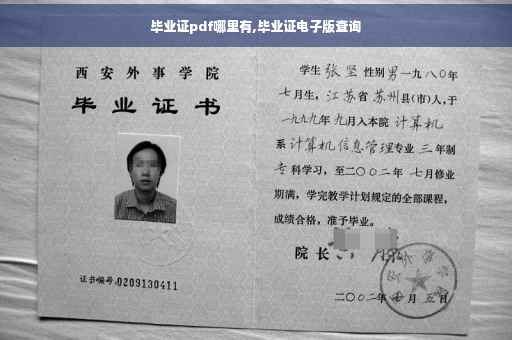 毕业证pdf哪里有,毕业证电子版查询
西安外事学院
毕业证书
证书编号:0209130411
学生 张坚 性别 男 一九八〇年
七月生，江苏省 苏州县(市)人，于
一九九九年 九月入本院 计算机
系 计算机信息管理专业 三 年制
专科学习，至二〇〇二年 七月修业
期满，学完教学计划规定的全部课程，
成绩合格，准予毕业。
院长
二〇〇二年 月 五日